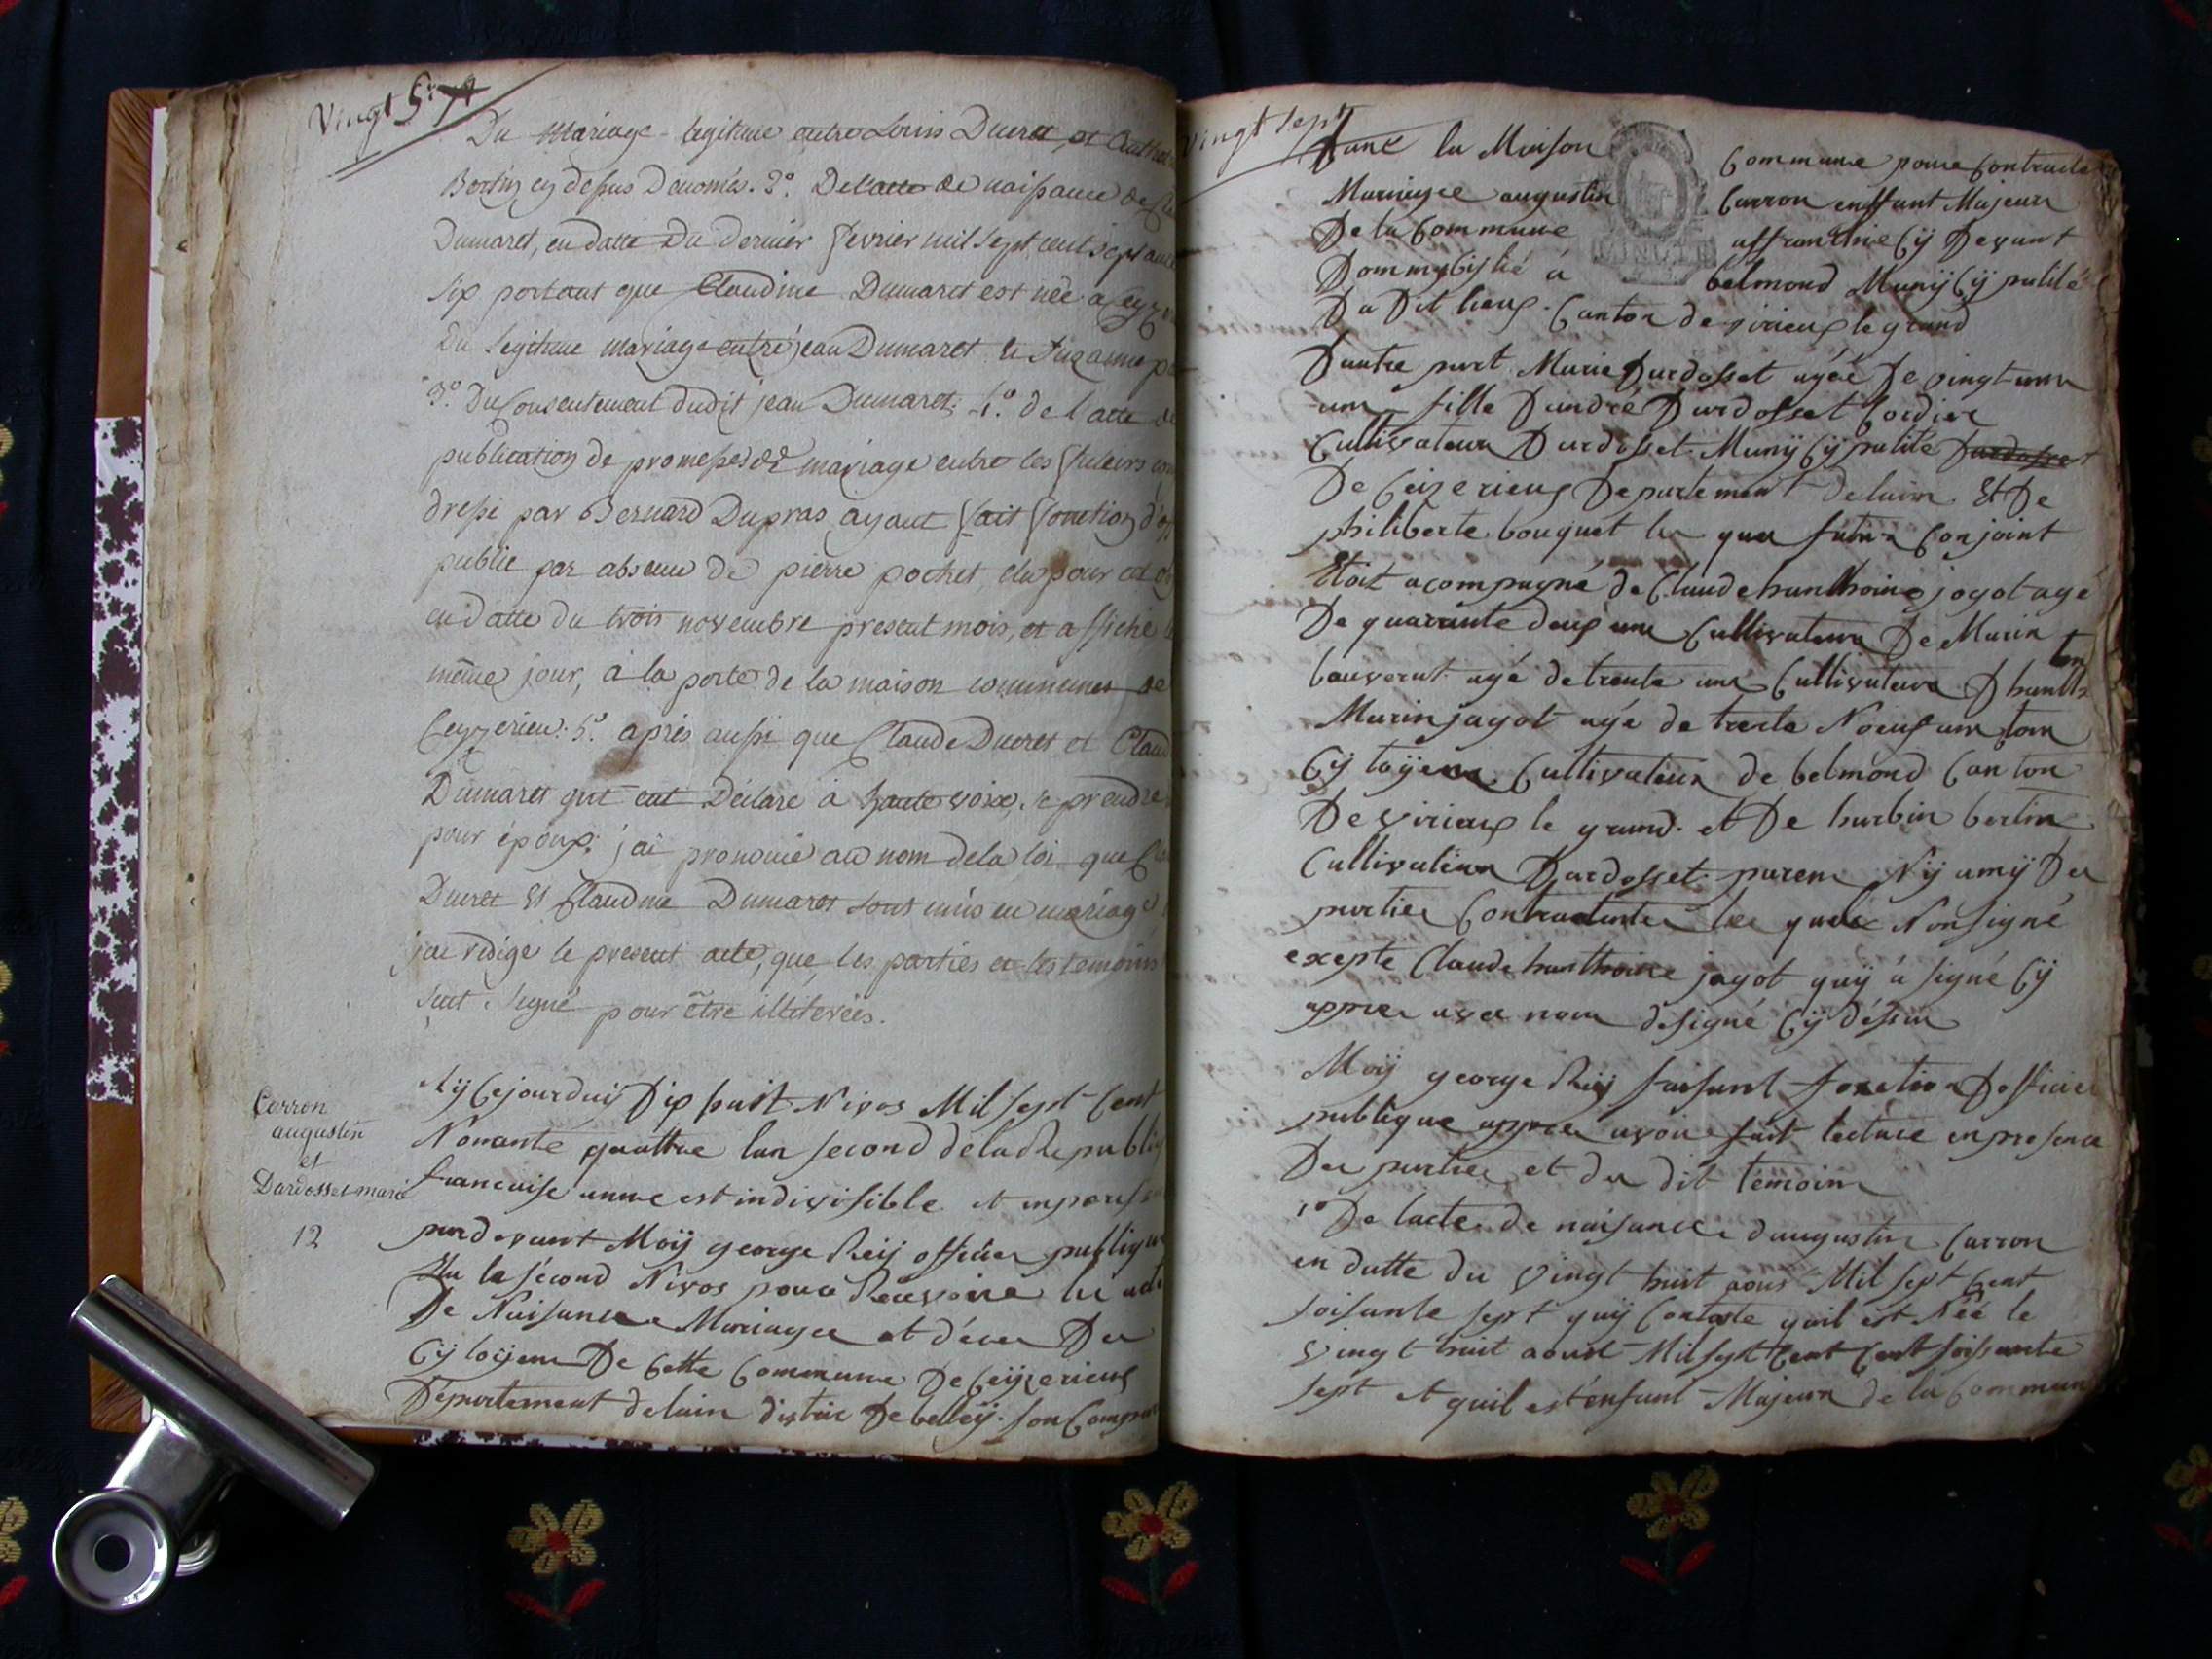 Vingt
Du Mariage legitime entre Louis Ducret, et
Bertin cy dessus Dénomés. 2º. De l'acte de naissance de
Dumaret, en datte du dernier fevrier mil sept cent septante
six portant que Claudine Dumaret est née a
du legitime mariage entre jean Dumaret et Suzanne
3º. Du Consentement dudit jean Dumaret; 4º. de l'acte de
publication de promesses de mariage entre les futeurs
dressé par Bernard Dupras ayant fait fonction
publie par absence de pierre pochet, elu pour cet
en datte du trois novembre present mois, et affiché
même jour, à la porte de la maison commune de
Ceyzerieu. 5º. après aussi que Claude Ducret et
Dumaret eut Déclaré à haute voix, se prendre
pour époux; j'ai prononcé au nom de la loi que
Ducret Et Claudine Dumaret sont unis en mariage
j'ai redigé le present acte, que les parties et les temoins
signé pour être illiterées.
Carron
augustin
et
Dardosset marie
12
Cejourduij Dix huit Nivos Mil sept Cent
Nonante quattre lan second de la Republi
francaise unne est indivisible et
pardevant Moij george Reij officier publique
Elu le sécond Nivos pour Recevoire les
De Naisance Mariages et déces Des
Cijtoijens De Cette Commune De Ceijzerieux
Département de lain distric De belleij. son
vingt sept
Dans la Maison Commune pour Contracte
Mariagee augustin Carron enffant Majeur
De la Commune Cij Devant
Dommycislié á belmond Munijcijpalité
Du Dit lieux. Canton de virieux le grand
Dautre part Marie Dardosset agéé De vingt
ans fille Dandré Dardosset Cordier
Cultivateur Dardosset Munijcijpalité Dardosset
De Ceizerieux Departement delain Et De
philiberte bouquet les quel futur Conjoint
Etait acompagné de Claude hanthoine jogot agé
De quarante deux ans Cultivateur De Marin
bauverat agé de trente ans Cultivateur
Marin jagot agé de trente Noeuf ans tous
Cijtoijens Cultivateur de belmond Canton
De virieux le grand. et De hurbin bertin
Cultivateur Dardosset paren Nij amij Des
parties Contractantes les quelx Nonsigné
excepte Claude hanthoine jagot quij á signé Cij
appres avec nous designé Cij déssus
Moij george Reij faisant fonction Dofficier
publique appres avoir fait lecture en presence
Des parties et des dit témoins
1º De lacte de naisance daugustin Carron
en datte du vingt huit aous Mil sept Cent
soisante sept quij Contaste quil est Néé le
vingt huit aoust Mil sept Cent Cent soissante
sept et quil est enfant Majeur de la Commun